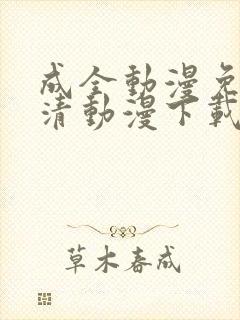 成全動漫免
清動漫下載
草木春成